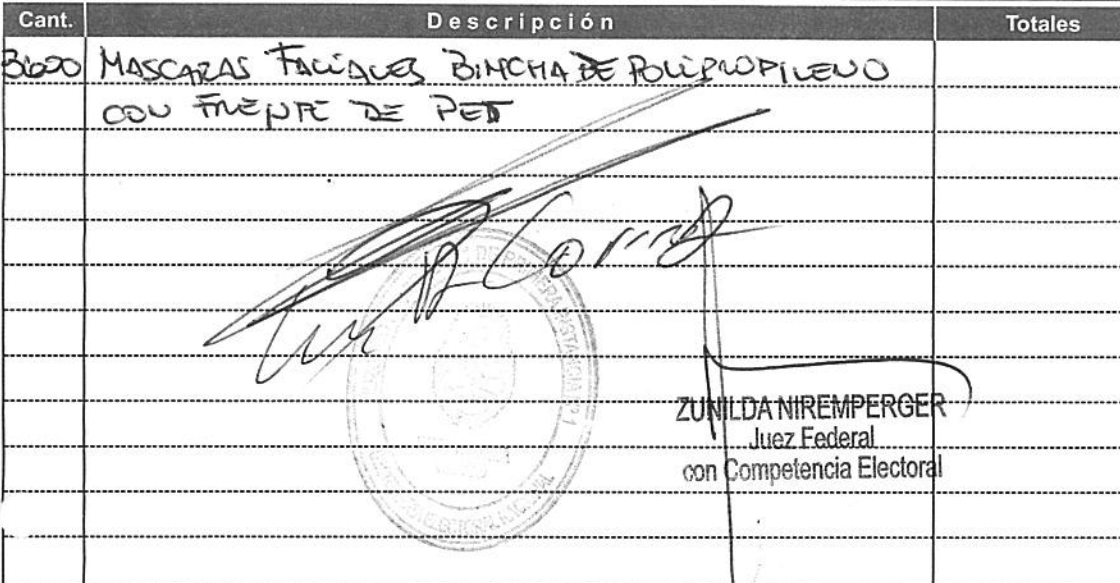 Cant. Descripción Totales
3600 MASCARAS FACIALES BINCHA DE POLIPROPILENO
CON FRENTE DE PET
ZUNILDA NIREMPERGER
Juez Federal
con Competencia Electoral